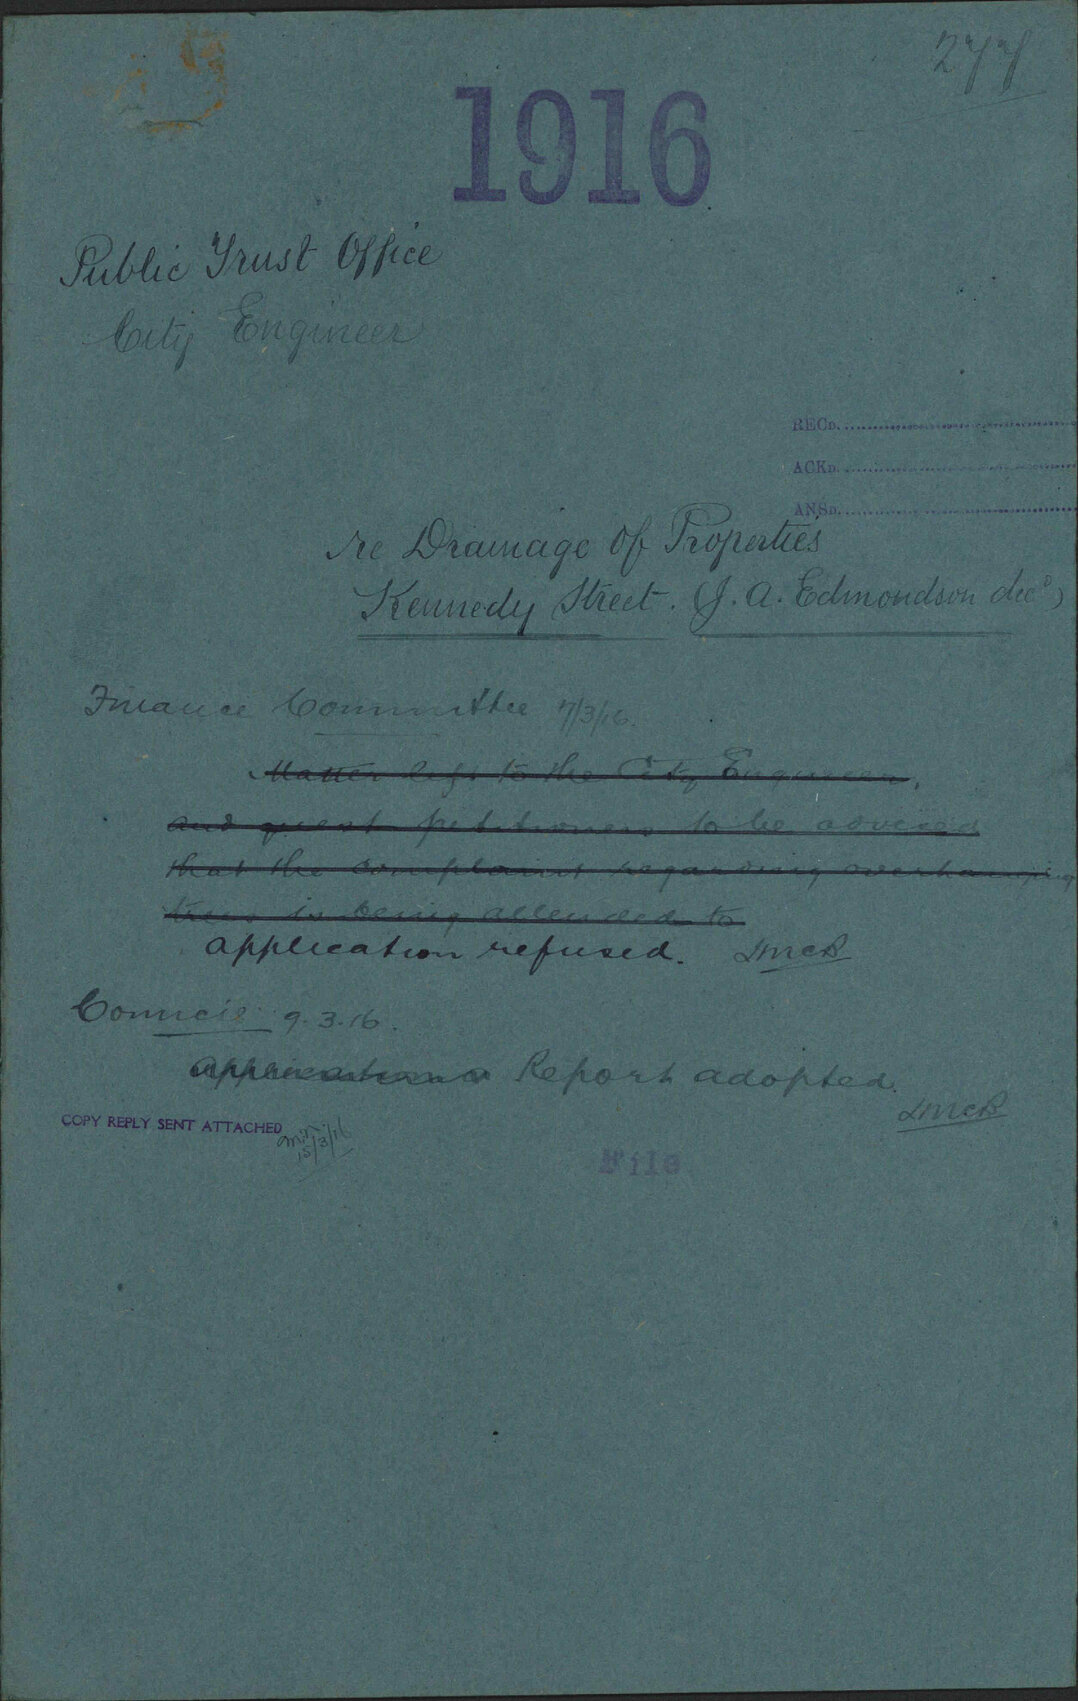 277
1916
Public Trust Office
City Engineer
RECD.
ACKD.
ANSD.
re Drainage of Properties
Kennedy Street. (J. A. Edmondson decd)
Finance Committee 7/3/16.
Matter left to the City Engineer,
and petitioners to be advised
that the complaint regarding overhanging
trees is being attended to
application refused. JMcB
Council 9.3.16.
Application Report adopted.
JMcB
COPY REPLY SENT ATTACHED
15/3/16
File